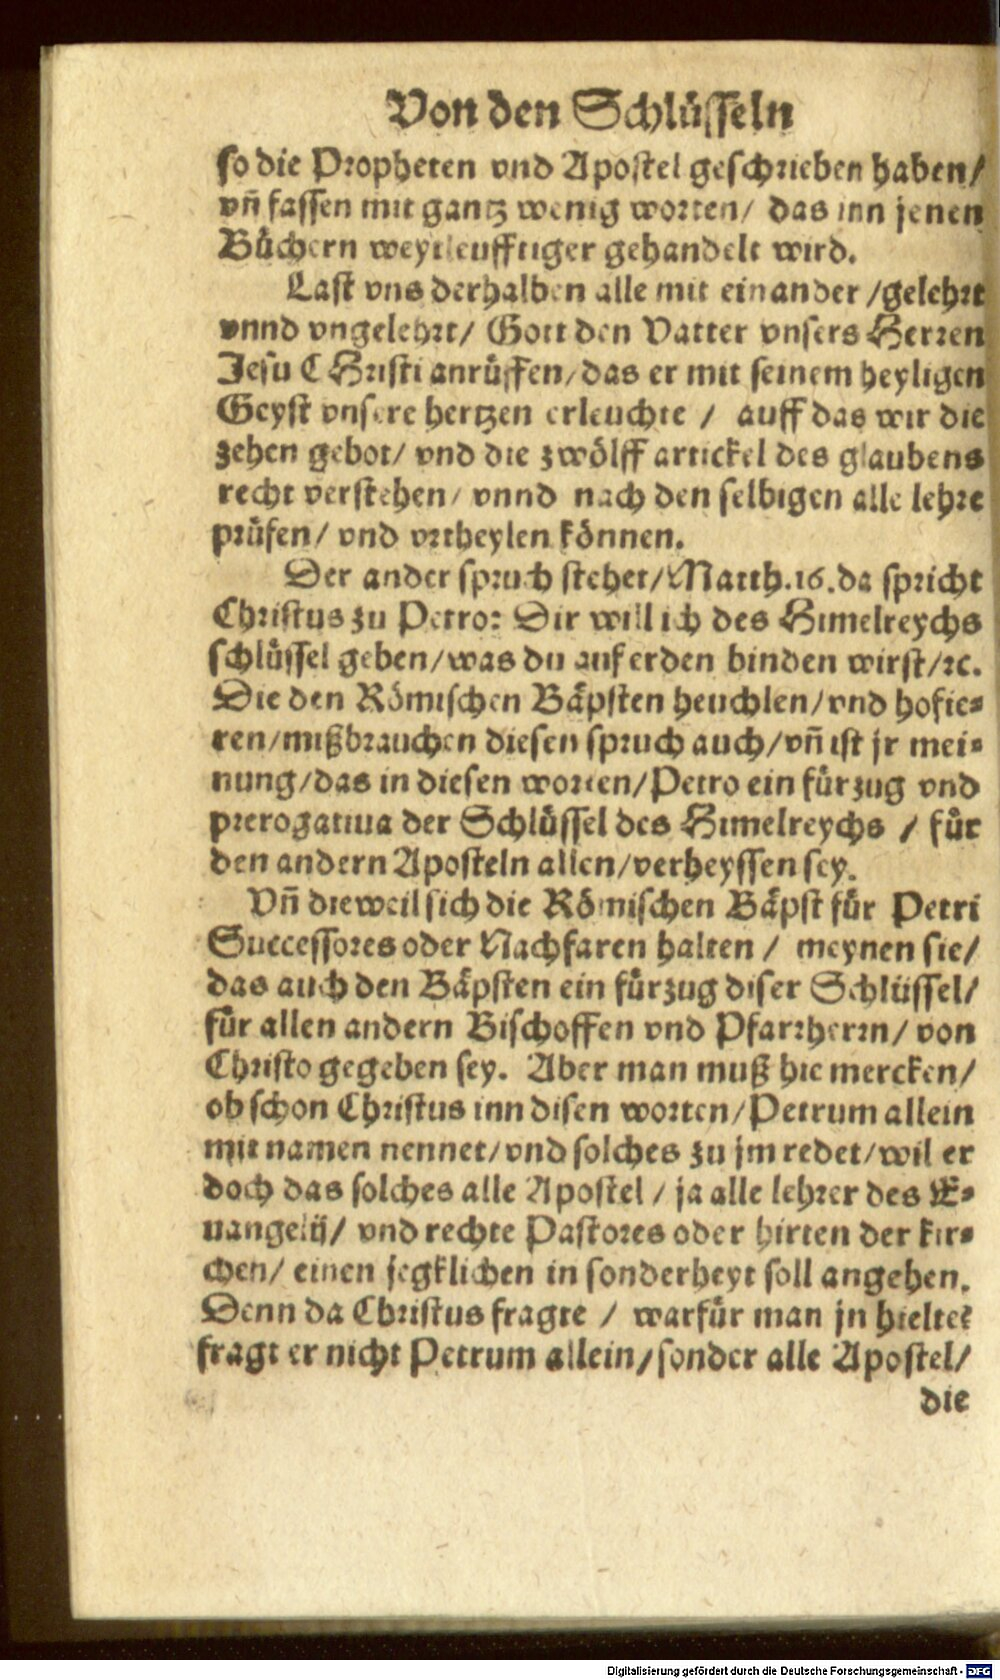 Von den Schlüsseln
so die Propheten vnd Apostel geschrieben haben/
vñ fassen mit gantz wenig worten/ das inn jenen
Büchern weytleufftiger gehandelt wird.
Last vns derhalben alle mit einander /gelehrt
vnnd vngelehrt/ Gott den Vatter vnsers Herren
Jesu CHristi anrüffen/das er mit seinem heyligen
Geyst vnsere hertzen erleuchte / auff das wir die
zehen gebot/ vnd die zwölff artickel des glaubens
recht verstehen/ vnnd nach den selbigen alle lehre
prüfen/ vnd vrtheylen können.
Der ander spruch stehet/Matth.16.da spricht
Christus zu Petro: Dir will ich des Himelreychs
schlüssel geben/was du auf erden binden wirst/ꝛc.
Die den Römischen Bäpsten heuchlen/vnd hofie-
ren/mißbrauchen diesen spruch auch/vñ ist jr mei-
nung/das in diesen worten/Petro ein fürzug vnd
prerogatiua der Schlüssel des Himelreychs / für
den andern Aposteln allen/verheyssen sey.
Vñ dieweil sich die Römischen Bäpst für Petri
Successores oder Nachfaren halten / meynen sie/
das auch den Bäpsten ein fürzug diser Schlüssel/
für allen andern Bischoffen vnd Pfarrherrn/ von
Christo gegeben sey. Aber man muß hie mercken/
ob schon Christus inn disen worten/Petrum allein
mit namen nennet/vnd solches zu jm redet/wil er
doch das solches alle Apostel / ja alle lehrer des E-
uangelij/ vnd rechte Pastores oder hirten der kir-
chen/ einen jegklichen in sonderheyt soll angehen.
Denn da Christus fragte / warfür man jn hielte?
fragt er nicht Petrum allein/sonder alle Apostel/
die
Digitalisierung gefördert durch die Deutsche Forschungsgemeinschaft - DFG